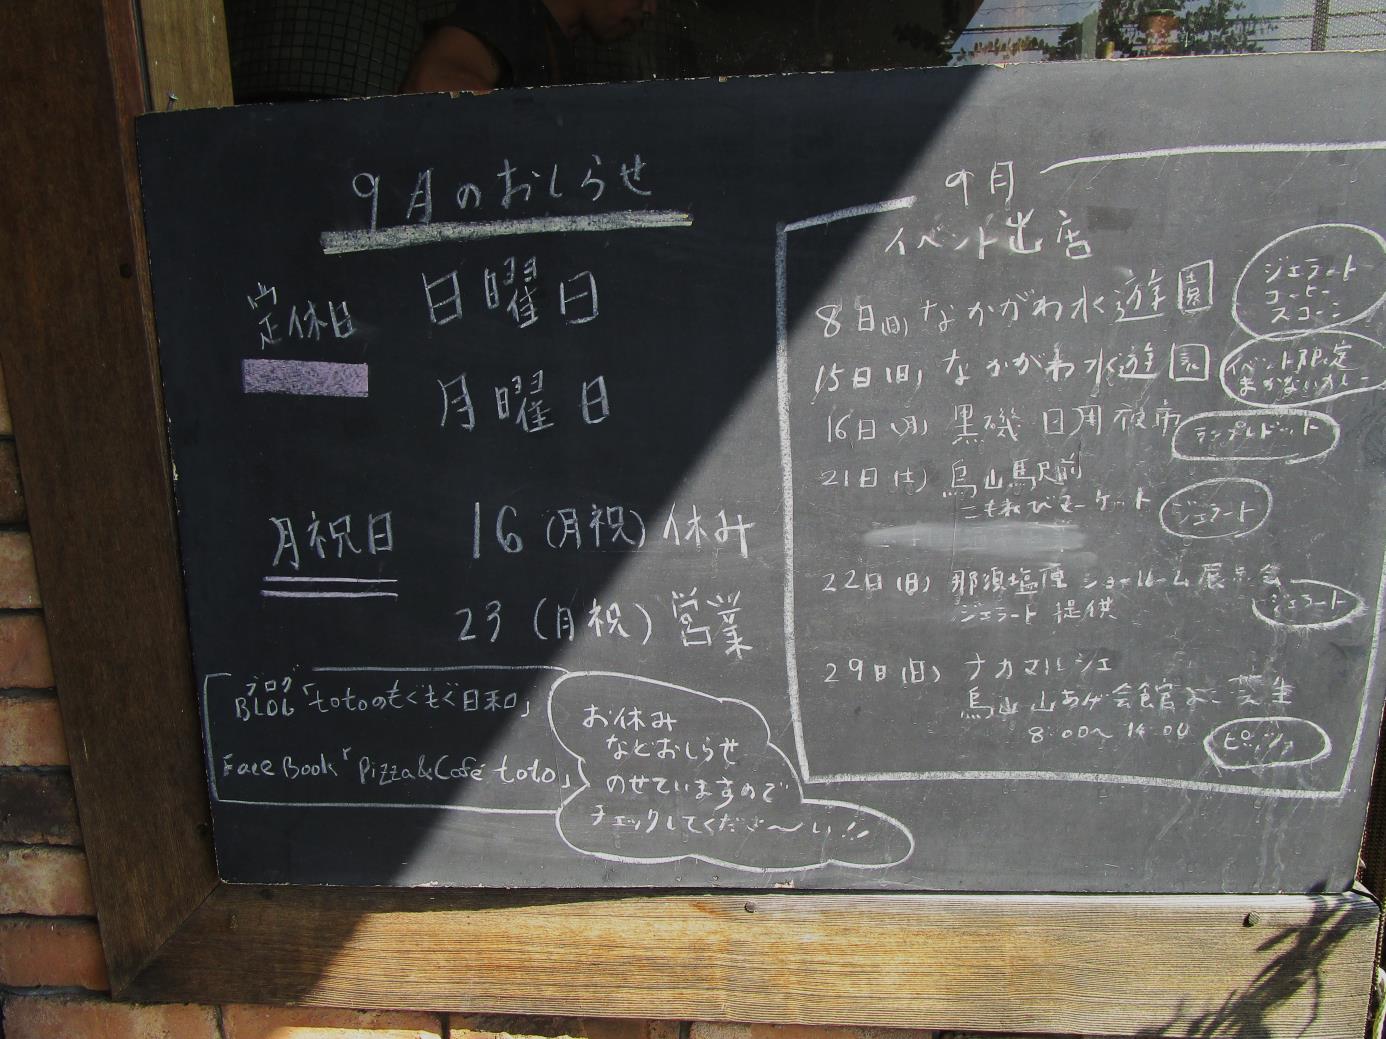 9月のおしらせ
定休日 日曜日
月曜日
月祝日 16(月祝)休み
23(月祝)営業
ブログ
BLOG「totoのもぐもぐ日和」
FaceBook「Pizza&Café toto」
お休み
などおしらせ
のせていますので
チェックしてくださ〜い!!
9月
イベント出店
8日(日)なかがわ水遊園
ジェラート
コーヒー
スコーン
15日(日)なかがわ水遊園
イベント限定
まかないカレー
16日(月)黒磯日用夜市
21日(土)烏山駅前
こもれびマーケット ジェラート
22日(日)那須塩原ショールーム展示会
ジェラート提供 ジェラート
29日(日)ナカマルシェ
烏山山あげ会館よこ芝生
8:00〜14:00 ピッツァ